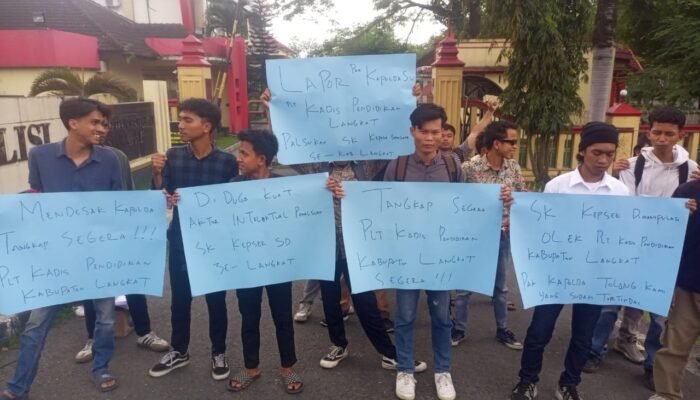 LISI
LAPOR PAK KAPOLDA SU
PLT KADIS PENDIDIKAN
LANGKAT
PALSUKAN SK KEPSEK
SE-KAB. LANGKAT
MENDESAK KAPOLDA
TANGKAP SEGERA!!!
PLT KADIS PENDIDIKAN
KABUPATEN LANGKAT
DI DUGA KUAT
AKTOR INTELEKTUAL
SK KEPSEK SD
SE-LANGKAT
TANGKAP SEGERA
PLT KADIS PENDIDIKAN
KABUPATEN LANGKAT
SEGERA!!!
SK KEPSEK DIMANIPULASI
OLEH PLT KADIS PENDIDIKAN
KABUPATEN LANGKAT
PAK KAPOLDA TOLONG KAMI
YANG SUDAH TERTINDAS